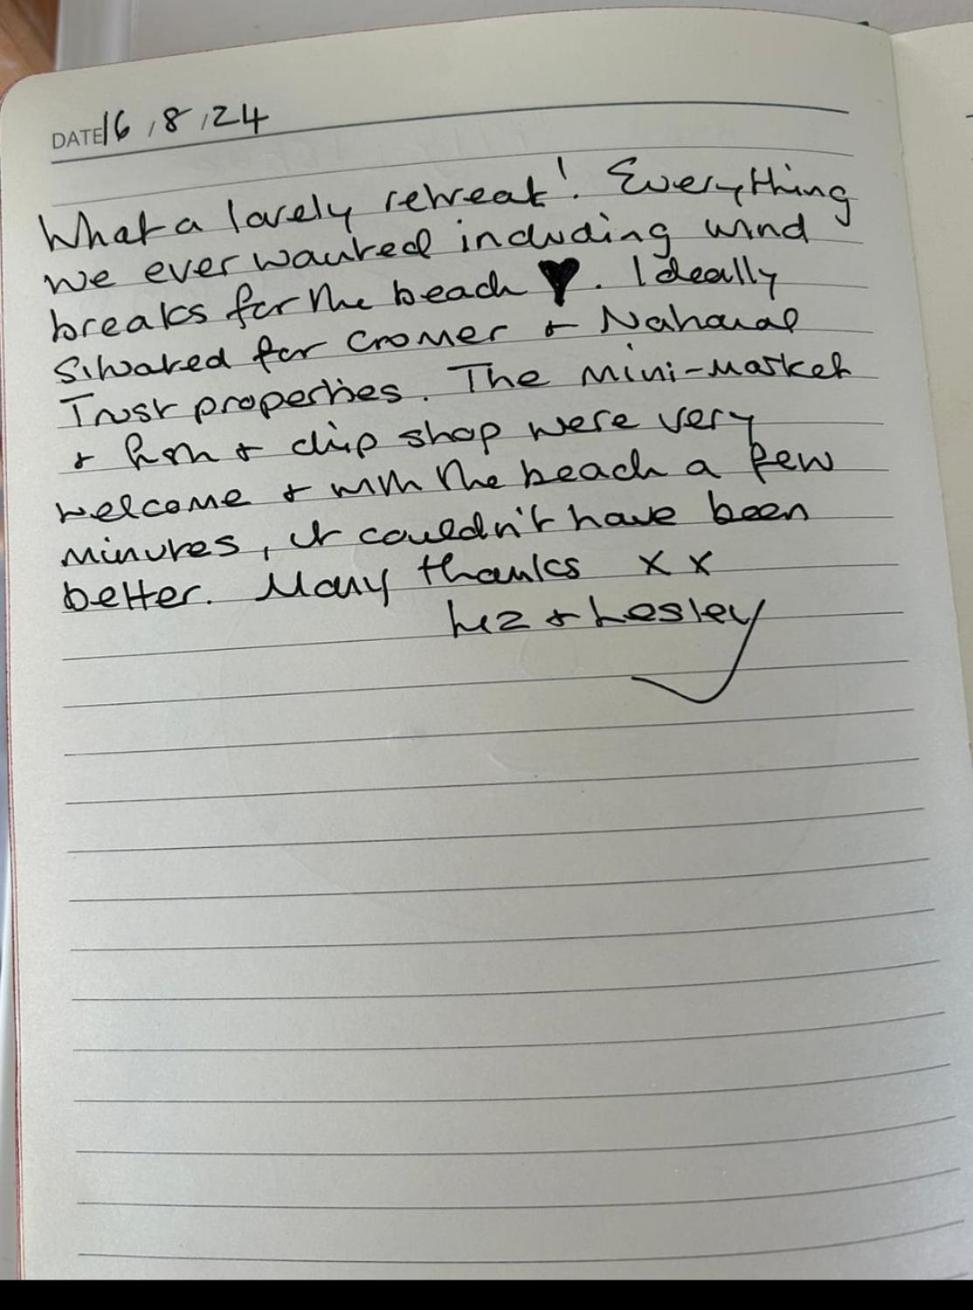 DATE 16/8/24
What a lovely retreat!. Everything
we ever wanted including wind
breaks for the beach ♥. Ideally
situated for Cromer & National
Trust properties. The mini-market
& fish & chip shop were very
welcome & with the beach a few
minutes, it couldn't have been
better. Many thanks x x
Liz & Lesley